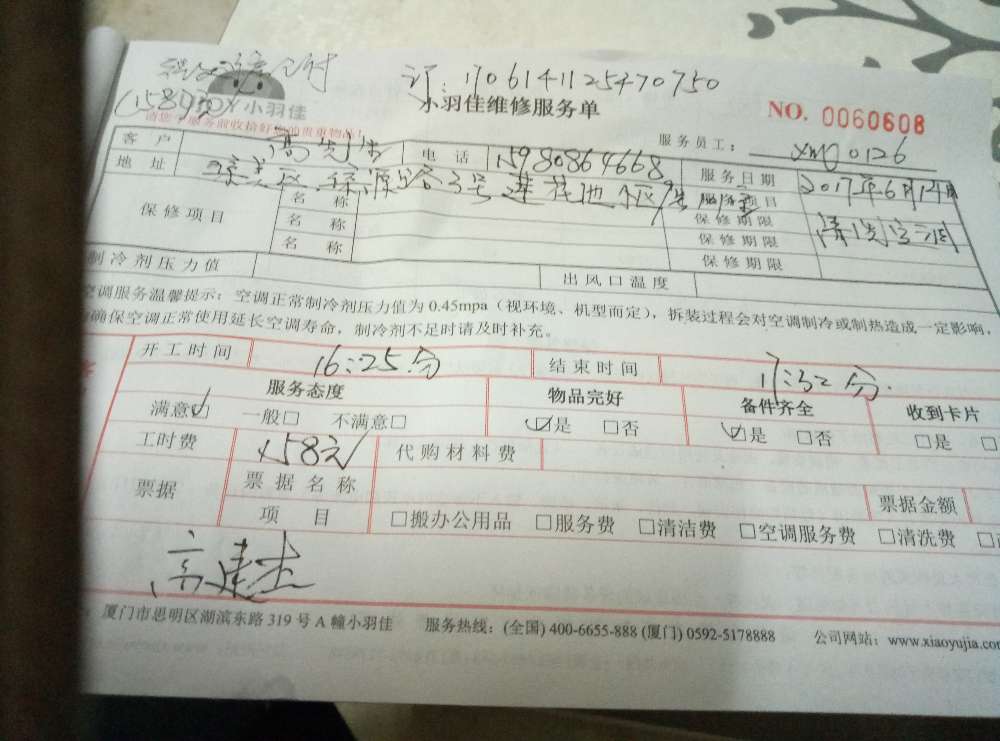 订:170614112547０750
小羽佳
小羽佳维修服务单
NO. 0060608
请您于服务前收拾好您的贵重物品!
服务员工: XM00126
客户 高先生 电话 15980864668 服务日期 2017年6月14日
地址 服务项目 清洗空调
保修项目 名称 保修期限
名称 保修期限
名称 保修期限
制冷剂压力值 出风口温度
空调服务温馨提示: 空调正常制冷剂压力值为 0.45mpa (视环境、机型而定), 拆装过程会对空调制冷或制热造成一定影响,
确保空调正常使用延长空调寿命, 制冷剂不足时请及时补充。
开工时间 16:25分 结束时间 17:32分
服务态度 物品完好 备件齐全 收到卡片
满意☑ 一般□ 不满意□ ☑是 □否 ☑是 □否 □是 □
工时费 158元 代购材料费
票据 票据名称 票据金额
项目 □搬办公用品 □服务费 □清洁费 □空调服务费 □清洗费
厦门市思明区湖滨东路 319 号 A 幢小羽佳 服务热线: (全国) 400-6655-888 (厦门) 0592-5178888 公司网站: www.xiaoyujia.com